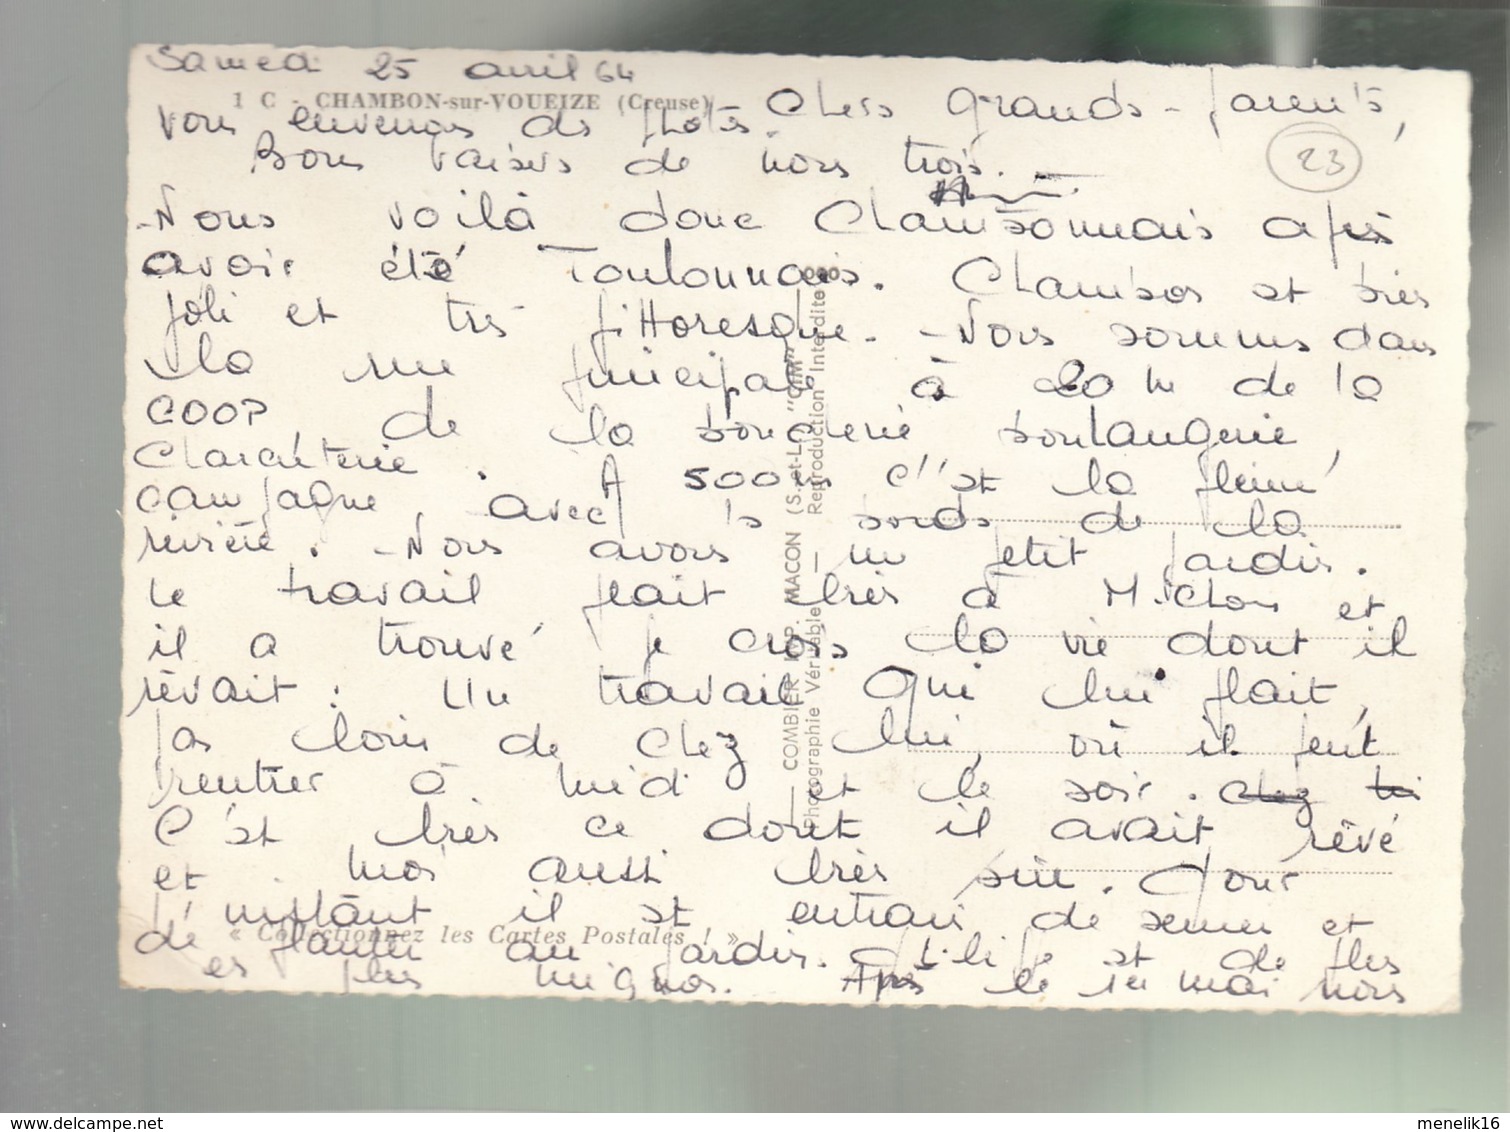 Samedi 25 avril 64
1 C - CHAMBON-sur-VOUEIZE (Creuse)
Chers Grands-Parents,
23
Nous voilà donc Chambonnais après
avoir été Toulonnais. Chambon est très
joli et très pittoresque. Nous sommes dans
la rue principale à 20 m de la
COOP, de la boucherie boulangerie,
charcuterie. A 500m c'est la pleine
campagne, avec ls bords de la
rivière. Nous avons un petit jardin.
Le travail plait bien à Michou et
il a trouvé je crois la vie dont il
rêvait : Un travail qui lui plait,
pas loin de chez lui, où il peut
rentrer à midi et le soir. chez lui
C'est bien ce dont il avait rêvé
et moi aussi bien sûr. Pour
l'instant il est entrain de semer et
de planter au jardin. est de plus
en plus mignon. Après le 1er mai nous
vous enverrons des photos.
Bons baisers de nous trois.
COMBIER IMP. MACON (S.-et-L.) "CIM"
Photographie Véritable — Reproduction Interdite
« Collectionnez les Cartes Postales ! »
menelik16
www.delcampe.net